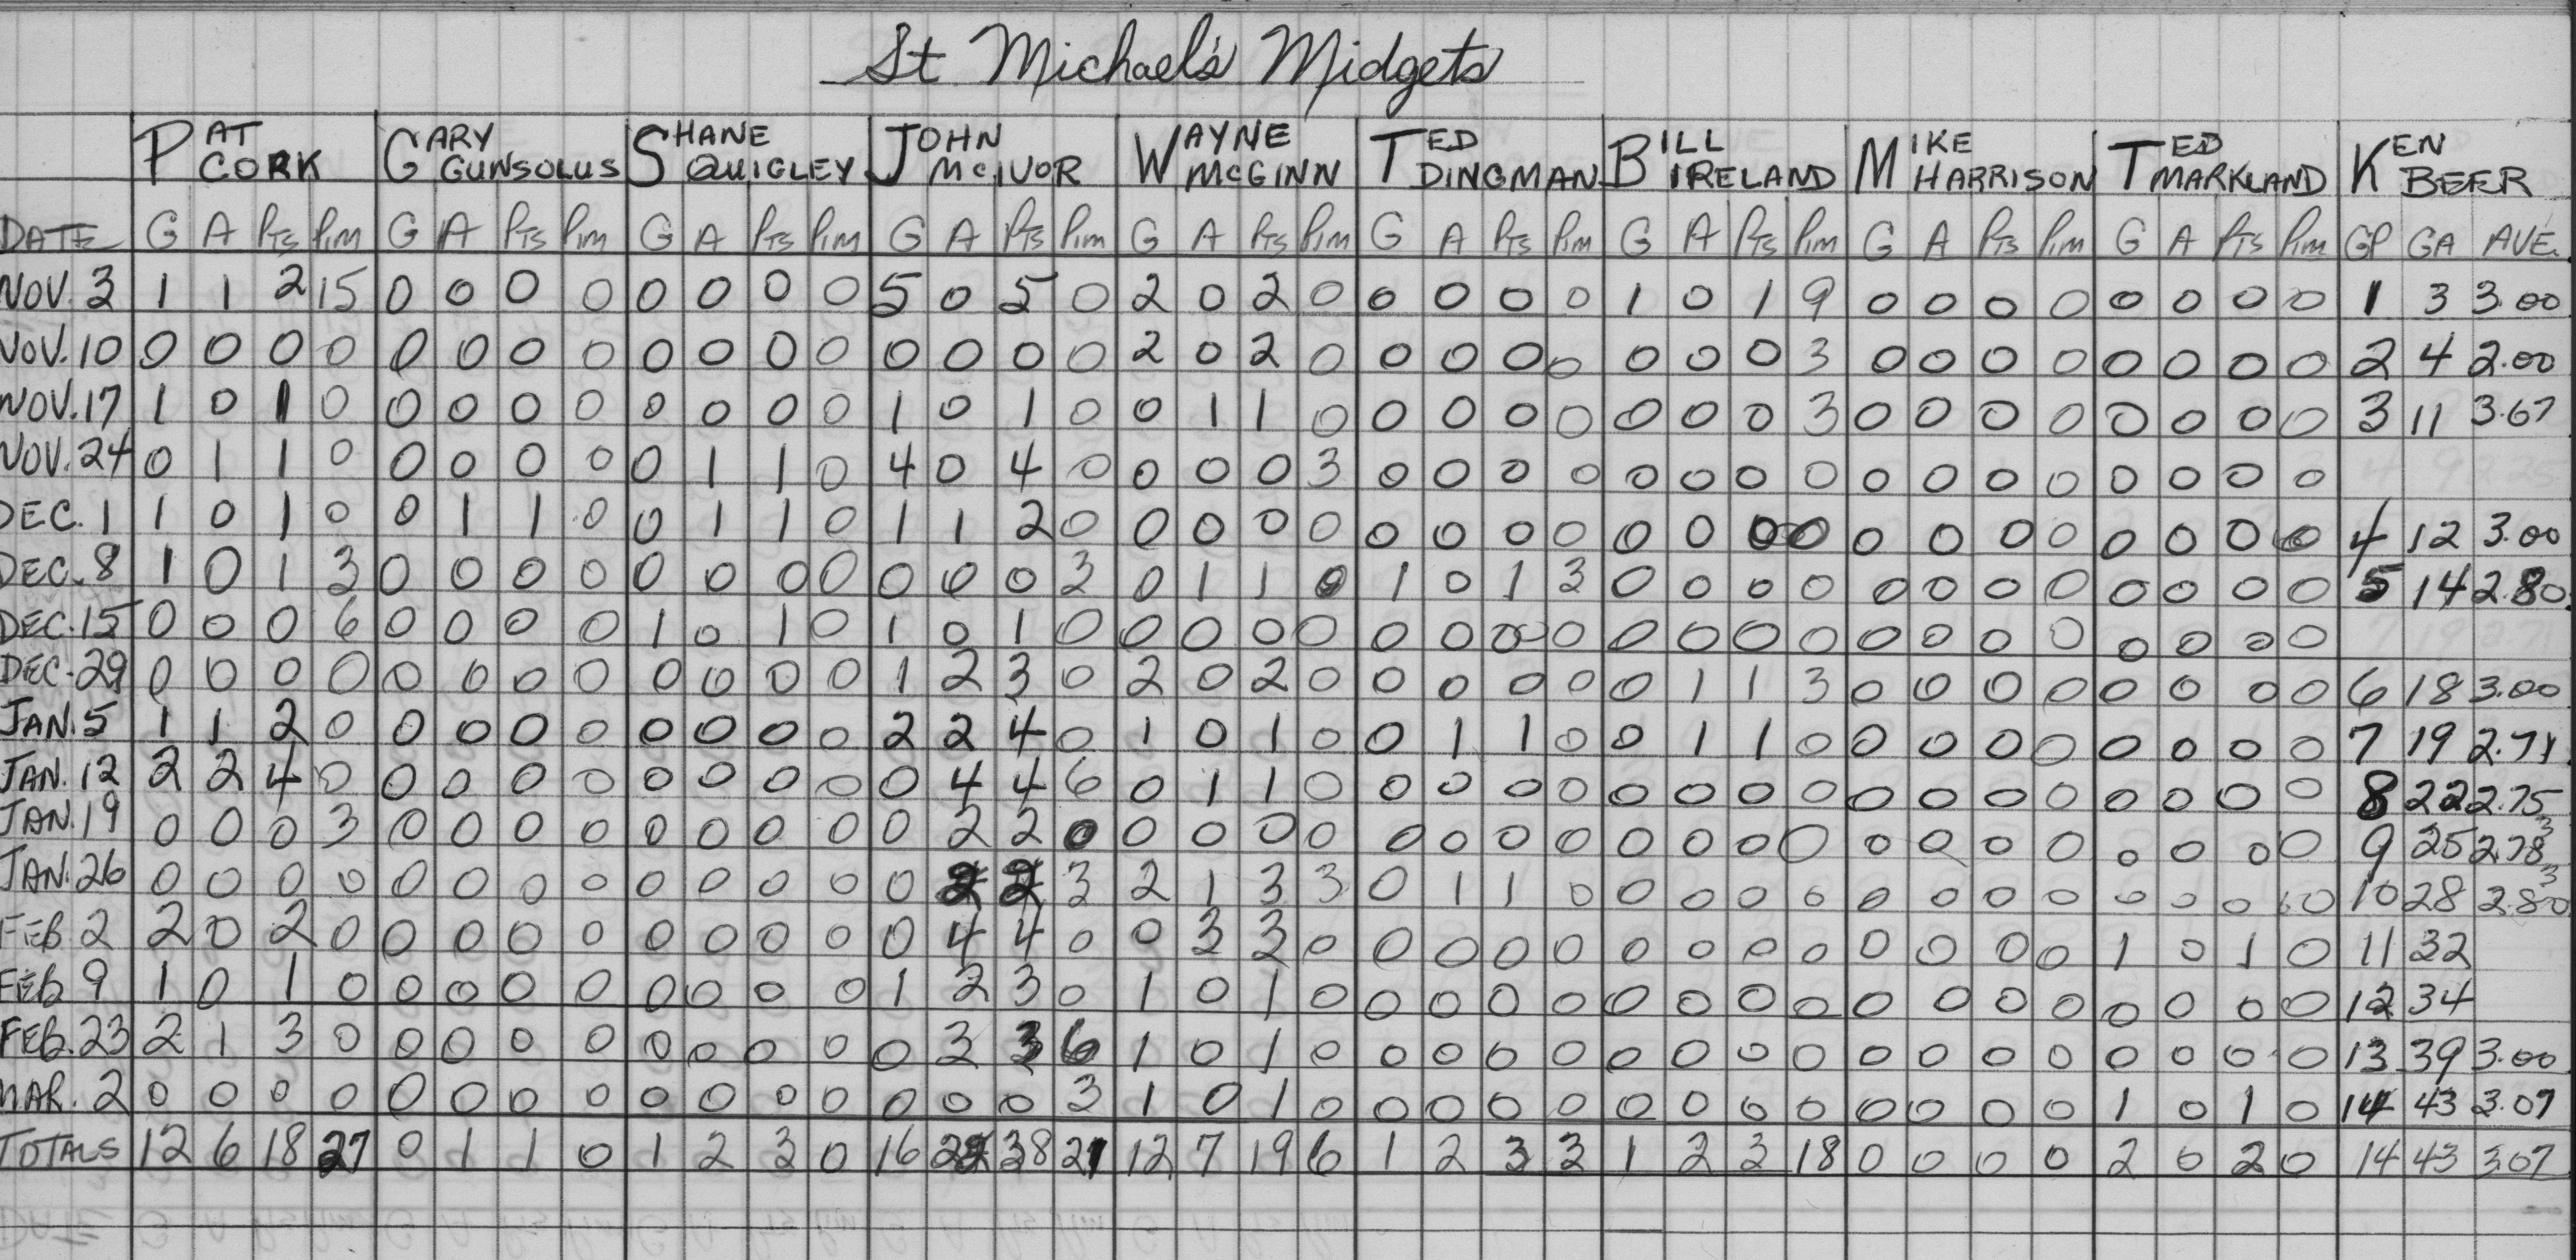 St Michael's Midgets
PAT CORK GARY GUNSOLUS SHANE QUIGLEY JOHN McIVOR WAYNE McGINN TED DINGMAN BILL IRELAND MIKE HARRISON TED MARKLAND KEN BEER
DATE G A Pts Pim G A Pts Pim G A Pts Pim G A Pts Pim G A Pts Pim G A Pts Pim G A Pts Pim G A Pts Pim G A Pts Pim GP GA AVE.
NOV. 3 1 1 2 15 0 0 0 0 0 0 0 0 5 0 5 0 2 0 2 0 0 0 0 0 1 0 1 9 0 0 0 0 0 0 0 0 1 3 3.00
NOV. 10 0 0 0 0 0 0 0 0 0 0 0 0 0 0 0 0 2 0 2 0 0 0 0 0 0 0 0 3 0 0 0 0 0 0 0 0 2 4 2.00
NOV. 17 1 0 1 0 0 0 0 0 0 0 0 0 1 0 1 0 0 1 1 0 0 0 0 0 0 0 0 3 0 0 0 0 0 0 0 0 3 11 3.67
NOV. 24 0 1 1 0 0 0 0 0 0 1 1 0 4 0 4 0 0 0 0 3 0 0 0 0 0 0 0 0 0 0 0 0 0 0 0 0
DEC. 1 1 0 1 0 0 1 1 0 0 1 1 0 1 1 2 0 0 0 0 0 0 0 0 0 0 0 0 0 0 0 0 0 0 0 0 0 4 12 3.00
DEC. 8 1 0 1 3 0 0 0 0 0 0 0 0 0 0 0 3 0 1 1 0 1 0 1 3 0 0 0 0 0 0 0 0 0 0 0 0 5 14 2.80
DEC. 15 0 0 0 6 0 0 0 0 1 0 1 0 1 0 1 0 0 0 0 0 0 0 0 0 0 0 0 0 0 0 0 0 0 0 0 0
DEC. 29 0 0 0 0 0 0 0 0 0 0 0 0 1 2 3 0 2 0 2 0 0 0 0 0 0 1 1 3 0 0 0 0 0 0 0 0 6 18 3.00
JAN. 5 1 1 2 0 0 0 0 0 0 0 0 0 2 2 4 0 1 0 1 0 0 1 1 0 0 1 1 0 0 0 0 0 0 0 0 0 7 19 2.71
JAN. 12 2 2 4 0 0 0 0 0 0 0 0 0 0 4 4 6 0 1 1 0 0 0 0 0 0 0 0 0 0 0 0 0 0 0 0 0 8 22 2.75
JAN. 19 0 0 0 3 0 0 0 0 0 0 0 0 0 2 2 0 0 0 0 0 0 0 0 0 0 0 0 0 0 0 0 0 0 0 0 0 9 25 2.78 3
JAN. 26 0 0 0 0 0 0 0 0 0 0 0 0 0 2 2 3 2 1 3 3 0 1 1 0 0 0 0 0 0 0 0 0 0 0 0 0 10 28 2.80 3
FEB. 2 2 0 2 0 0 0 0 0 0 0 0 0 0 4 4 0 0 3 3 0 0 0 0 0 0 0 0 0 0 0 0 0 1 0 1 0 11 32
FEB 9 1 0 1 0 0 0 0 0 0 0 0 0 1 2 3 0 1 0 1 0 0 0 0 0 0 0 0 0 0 0 0 0 0 0 0 0 12 34
FEB. 23 2 1 3 0 0 0 0 0 0 0 0 0 0 3 3 6 1 0 1 0 0 0 0 0 0 0 0 0 0 0 0 0 0 0 0 0 13 39 3.00
MAR. 2 0 0 0 0 0 0 0 0 0 0 0 0 0 0 0 3 1 0 1 0 0 0 0 0 0 0 0 0 0 0 0 0 1 0 1 0 14 43 3.07
TOTALS 12 6 18 27 0 1 1 0 1 2 3 0 16 22 38 21 12 7 19 6 1 2 3 3 1 2 3 18 0 0 0 0 2 0 2 0 14 43 3.07